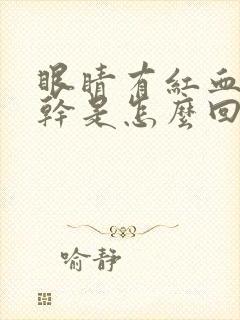 眼睛有紅血
幹是怎麼回
喻靜